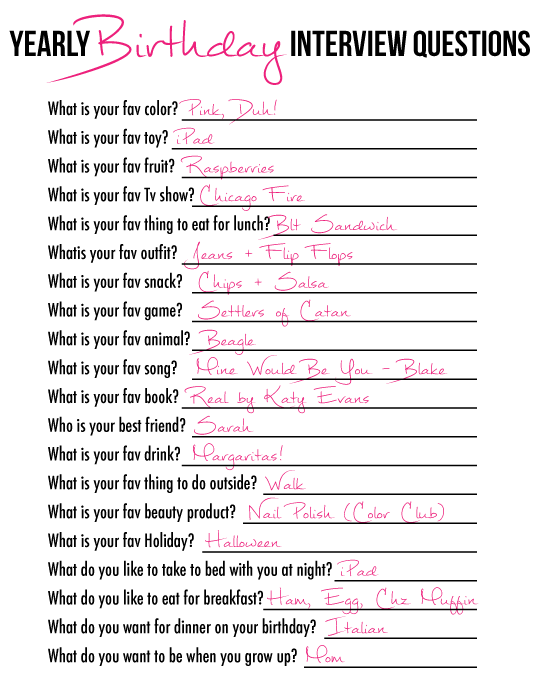 YEARLY Birthday INTERVIEW QUESTIONS
What is your fav color? Pink, Duh!
What is your fav toy? iPad
What is your fav fruit? Raspberries
What is your fav Tv show? Chicago Fire
What is your fav thing to eat for lunch? Blt Sandwich
Whatis your fav outfit? Jeans + Flip Flops
What is your fav snack? Chips + Salsa
What is your fav game? Settlers of Catan
What is your fav animal? Beagle
What is your fav song? Mine Would Be You - Blake
What is your fav book? Real by Katy Evans
Who is your best friend? Sarah
What is your fav drink? Margaritas!
What is your fav thing to do outside? Walk
What is your fav beauty product? Nail Polish (Color Club)
What is your fav Holiday? Halloween
What do you like to take to bed with you at night? iPad
What do you like to eat for breakfast? Ham, Egg, Chz Muffin
What do you want for dinner on your birthday? Italian
What do you want to be when you grow up? Mom